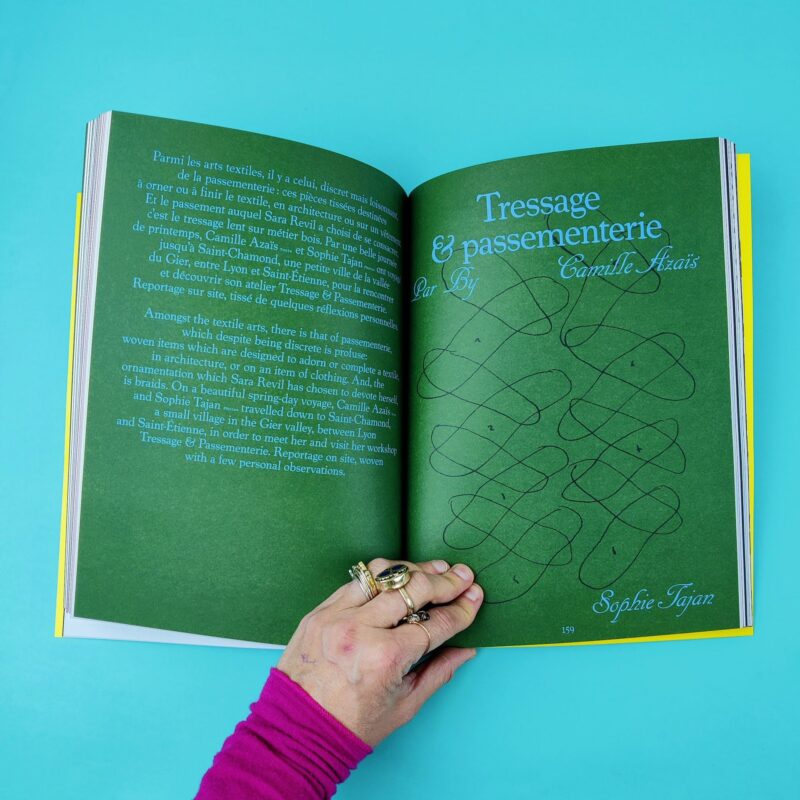 Parmi les arts textiles, il y a celui, discret mais foisonnant,
de la passementerie : ces pièces tissées destinées
à orner ou à finir le textile, en architecture ou sur un vêtement.
Et le passement auquel Sara Revil a choisi de se consacrer,
c'est le tressage lent sur métier bois. Par une belle journée
de printemps, Camille Azaïs et Sophie Tajan ont voyagé
jusqu'à Saint-Chamond, une petite ville de la vallée
du Gier, entre Lyon et Saint-Étienne, pour la rencontrer
et découvrir son atelier Tressage & Passementerie.
Reportage sur site, tissé de quelques réflexions personnelles.
Amongst the textile arts, there is that of passementerie,
which despite being discrete is profuse;
woven items which are designed to adorn or complete a textile,
in architecture, or on an item of clothing. And, the
ornamentation which Sara Revil has chosen to devote herself,
is braids. On a beautiful spring-day voyage, Camille Azaïs
and Sophie Tajan travelled down to Saint-Chamond,
a small village in the Gier valley, between Lyon
and Saint-Étienne, in order to meet her and visit her workshop
Tressage & Passementerie. Reportage on site, woven
with a few personal observations.
Tressage
& passementerie
Par By Camille Azaïs
Sophie Tajan
159